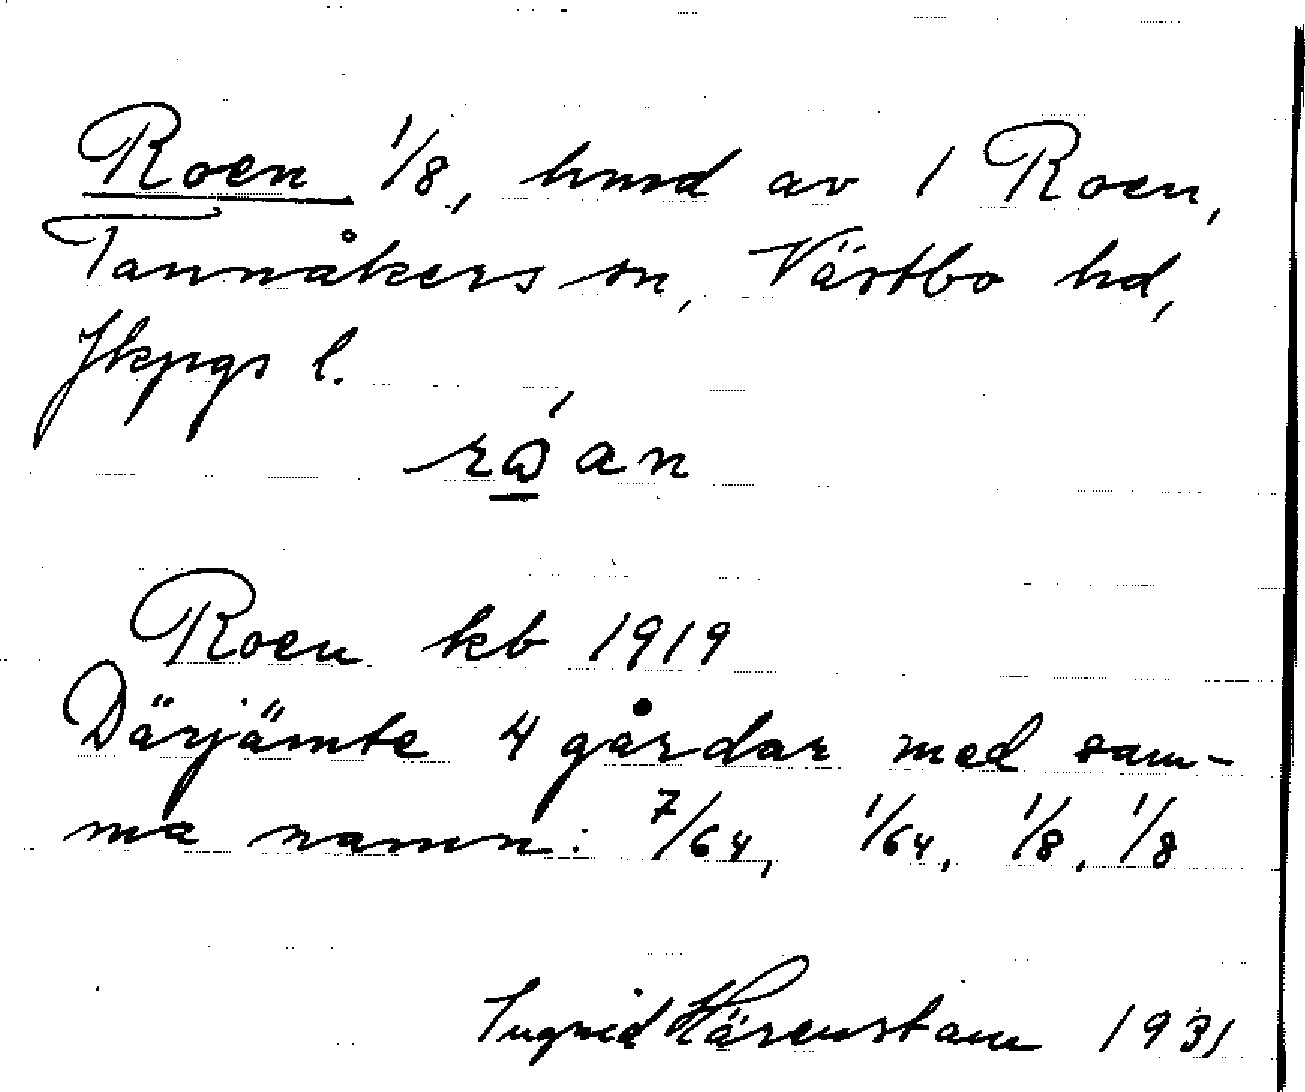 Roen 1/8, hmd av 1 Roen,
Tannåkers sn, Västbo hd,
Jkpgs l.
Roen kb 1919
Därjämte 4 gårdar med sam-
ma namn: 7/64, 1/64, 1/8, 1/8
Ingrid Härenstam 1931